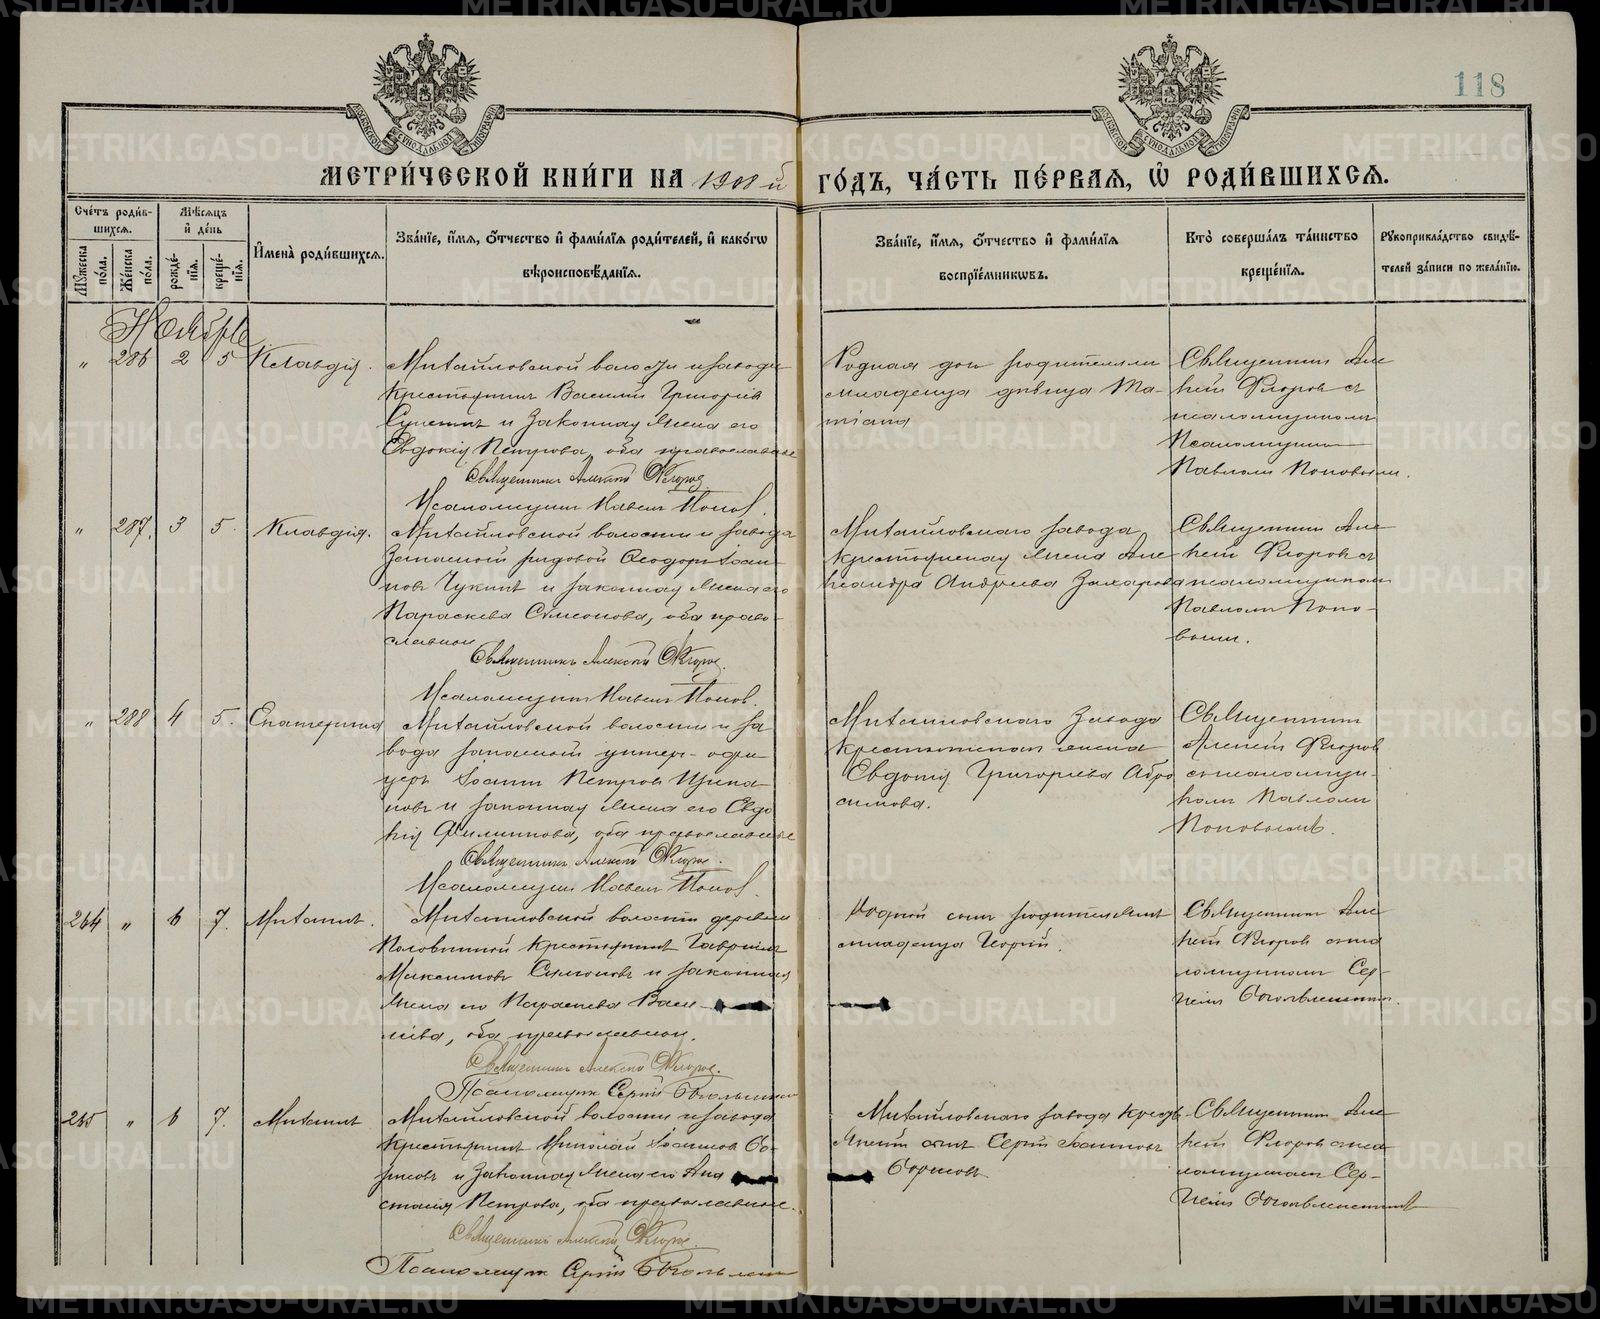 118
МЕТРИ́ЧЕСКОЙ КНИ́ГИ НА 1908 й ГО́ДЪ, ЧА́СТЬ ПЕ́РВАЯ, Ѡ҆ РОДИ́ВШИХСЯ.
Сче́тъ роди́в-
шихся.
Мѣ́сяцъ
и҆ де́нь
Мꙋ́жеска по́ла.
Же́нска по́ла.
рожде́-
нїя.
креще́-
нїя.
И҆мена̀ роди́вшихся.
Зва́нїе, и҆́мя, ѻ҆́тчество и҆ фами́лїя роди́телей, и҆ како́гѡ
вѣроисповѣ́данїя.
Зва́нїе, и҆́мя, ѻ҆́тчество и҆ фами́лїя
воспрїе́мникѡвъ.
Кто̀ соверша́лъ та́инство
креще́нїя.
Рꙋкоприкла́дство свидѣ́-
телей за́писи по жела́нїю.
Ноябрь
" 286 2 5 Клавдія.
Михайловской волости и завода
Крестьянинъ Василій Григоріев
и законная жена его
Евдокія Петрова, оба православные
Священникъ Алексій Флоров
Псаломщик Павелъ Попов.
Родная дочь родителям
младенца дѣвица Та-
тіана
Священник Але-
ксій Флоров съ
псаломщикомъ
Псаломщик
Павлом Поповым.
" 287. 3 5. Клавдія.
Михайловской волости и завода
Запасной рядовой Ѳеодор Іоан-
нов и законная жена его
Параскева Симеонова, оба право-
славные
Священникъ Алексій Флоров.
Псаломщик Павелъ Попов.
Михайловскаго завода
крестьянская жена Але-
ксандра Андреева Захарова
Священник Але-
ксій Флоров съ
псаломщиком
Павлом Попо-
вым.
" 288 4 5. Екатерина
Михайловской волости и за
вода запасной унтер-офи
церъ Іоанн Петров
и законная жена его Евдо
кія Филиппова, оба православные
Священникъ Алексій Флоров.
Псаломщик Павелъ Попов.
Михайловскаго Завода
крестьянская жена
Евдокія Григоріева Абро
симова.
Священник
Алексій Флоров
съ псаломщи-
ком Павлом
Поповымъ.
264 " 6 7. Михаилъ.
Михайловской волости деревни
Половинной крестьянинъ Гавріилъ
Максимовъ и законная
жена его Параскева Васи
ліева, оба православные.
Священникъ Алексій Флоров.
Псаломщик Сергій
Родной сын родителям
младенца Георгій.
Священник Але
ксій Флоров съ пса
ломщиком Сер-
гіем Богоявленским.
265 " 6 7. Михаилъ
Михайловской волости и завода
Крестьянинъ Николай Іоаннов Бо-
рисовъ и Законная жена его Ана
стасія Петрова, оба православные.
Священникъ Алексій Флоров.
Псаломщик Сергій
Михайловскаго завода крестъ-
янскій сынъ Сергій Іоанновъ
Борисовъ
Священник Але
ксій Флоров съ пса
ломщиком Сер-
гіем Богоявленскимъ